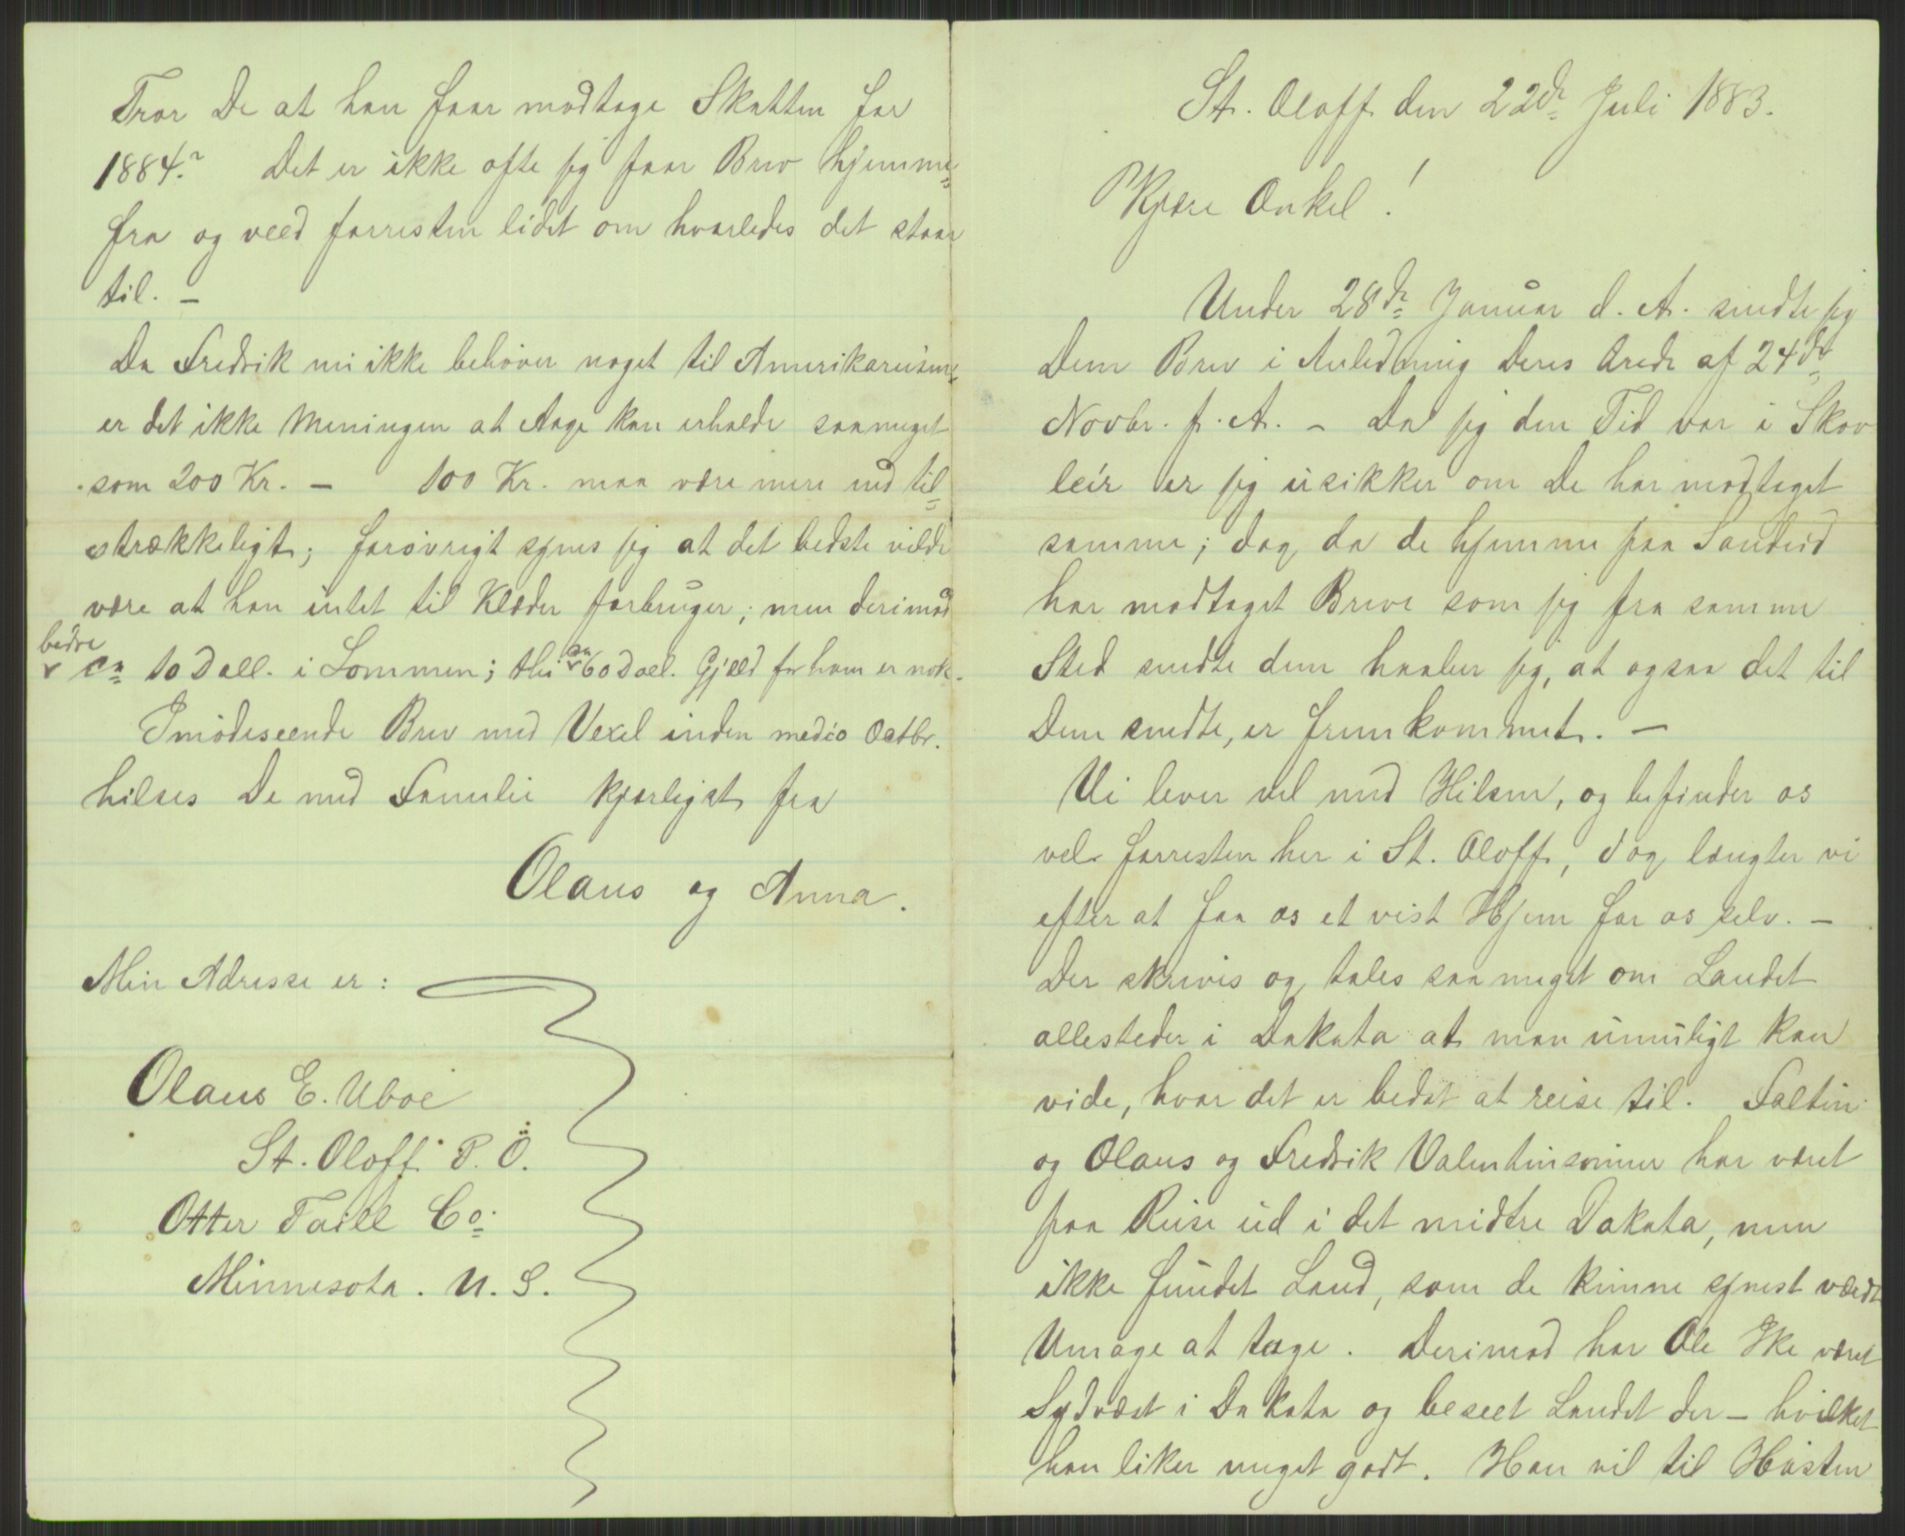 St. Oloff den 22de Juli 1883.
Kjære Onkel!
Under 28de Januar d. A. sendte jeg
Dem Brev i Anledning Deres Ærede af 24de
Novbr. f. A. – Da jeg den Tid var i Skov
leir er jeg usikker om De har modtaget
samme; dog da de hjemme paa Sandeid
har modtaget Breve som jeg fra samme
Sted sendte dem haaber jeg, at ogsaa det til
Dem sendte, er fremkommet. –
Vi lever vel med Hilsen, og befinder os
vel forresten her i St. Oloff, dog længter vi
efter at faa os et vist Hjem for os selv. –
Der skrives og tales saa meget om Landet
allesteder i Dakota at man umuligt kan
vide, hvor det er bedst at reise til. Faltin
og Olaus og Fredrik Valentinsønner har været
paa Reise ud i det midtre Dakota, men
ikke fundet Land, som de kunne synest værdt
Umage at tage. Derimod har Ole Ike været
Sydvæst i Dakota og beseet Landet der – hvilket
han liker meget godt. Han vil til Høsten
Tror De at han faar modtage Skatten for
1884? Det er ikke ofte jeg faar Brev hjemme=
fra og veed forresten lidet om hvorledes det staar
til. –
Da Fredrik nu ikke behøver noget til Amerikareisen,
er det ikke Meningen at Aage kan erholde saameget
som 200 Kr. – 100 Kr. maa være mere end til=
strækkeligt; forøvrigt synes jeg at det bedste vilde
være at han intet til Klæder forbruger; men derimod
bedre
ca 10 Doll. i Lommen; thi ca 60 Doll. Gjæld for ham er nok.
Imødeseende Brev med Vexel inden medio Octbr.
hilses De med Familie kjærligst fra
Olaus og Anna.
Min Adresse er:
Olaus E. Uboe
St. Oloff P. O.
Otter Taill Co.
Minnesota. U. S.